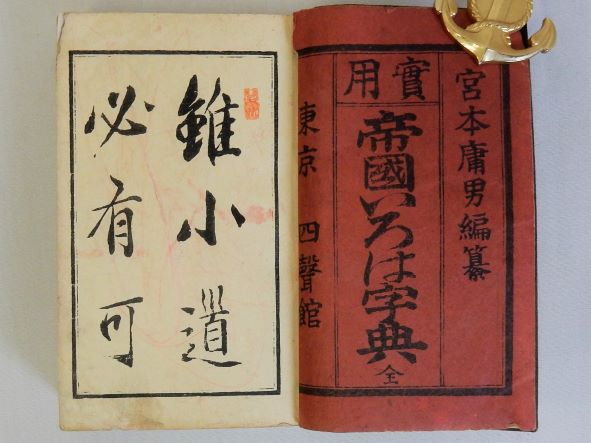 宮本庸男編纂
實用
帝國いろは字典 全
東京 四聲館
雖小道
必有可